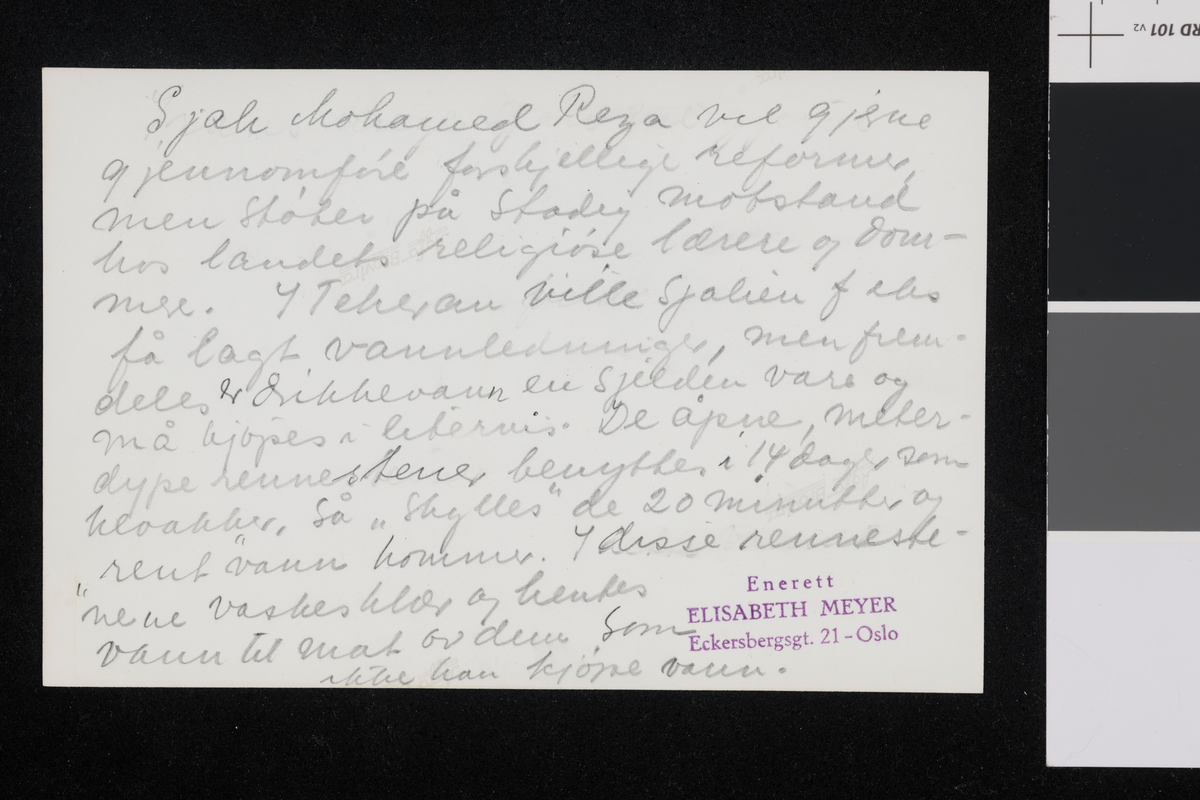 Sjah Mohamed Reza vil gjerne
gjennomföre forskjellige reformer,
men stöter på stadig motstand
hos landets religiöse lærere og dom-
mere. I Teheran ville Sjahen f eks
få lagt vannledninger, men frem-
deles er drikkevann en sjelden vare og
må kjöpes i litervis. De åpne, meter-
dype rennestener benyttes i 14 dager som
kloakker. Så „skylles" de 20 minutter og
"rent" vann kommer. I disse renneste-
nene vaskes klær og hentes
vann til mat av dem som
ikke kan kjöpe vann.
Enerett
ELISABETH MEYER
Eckersbergsgt. 21 - Oslo
RD 101 v2